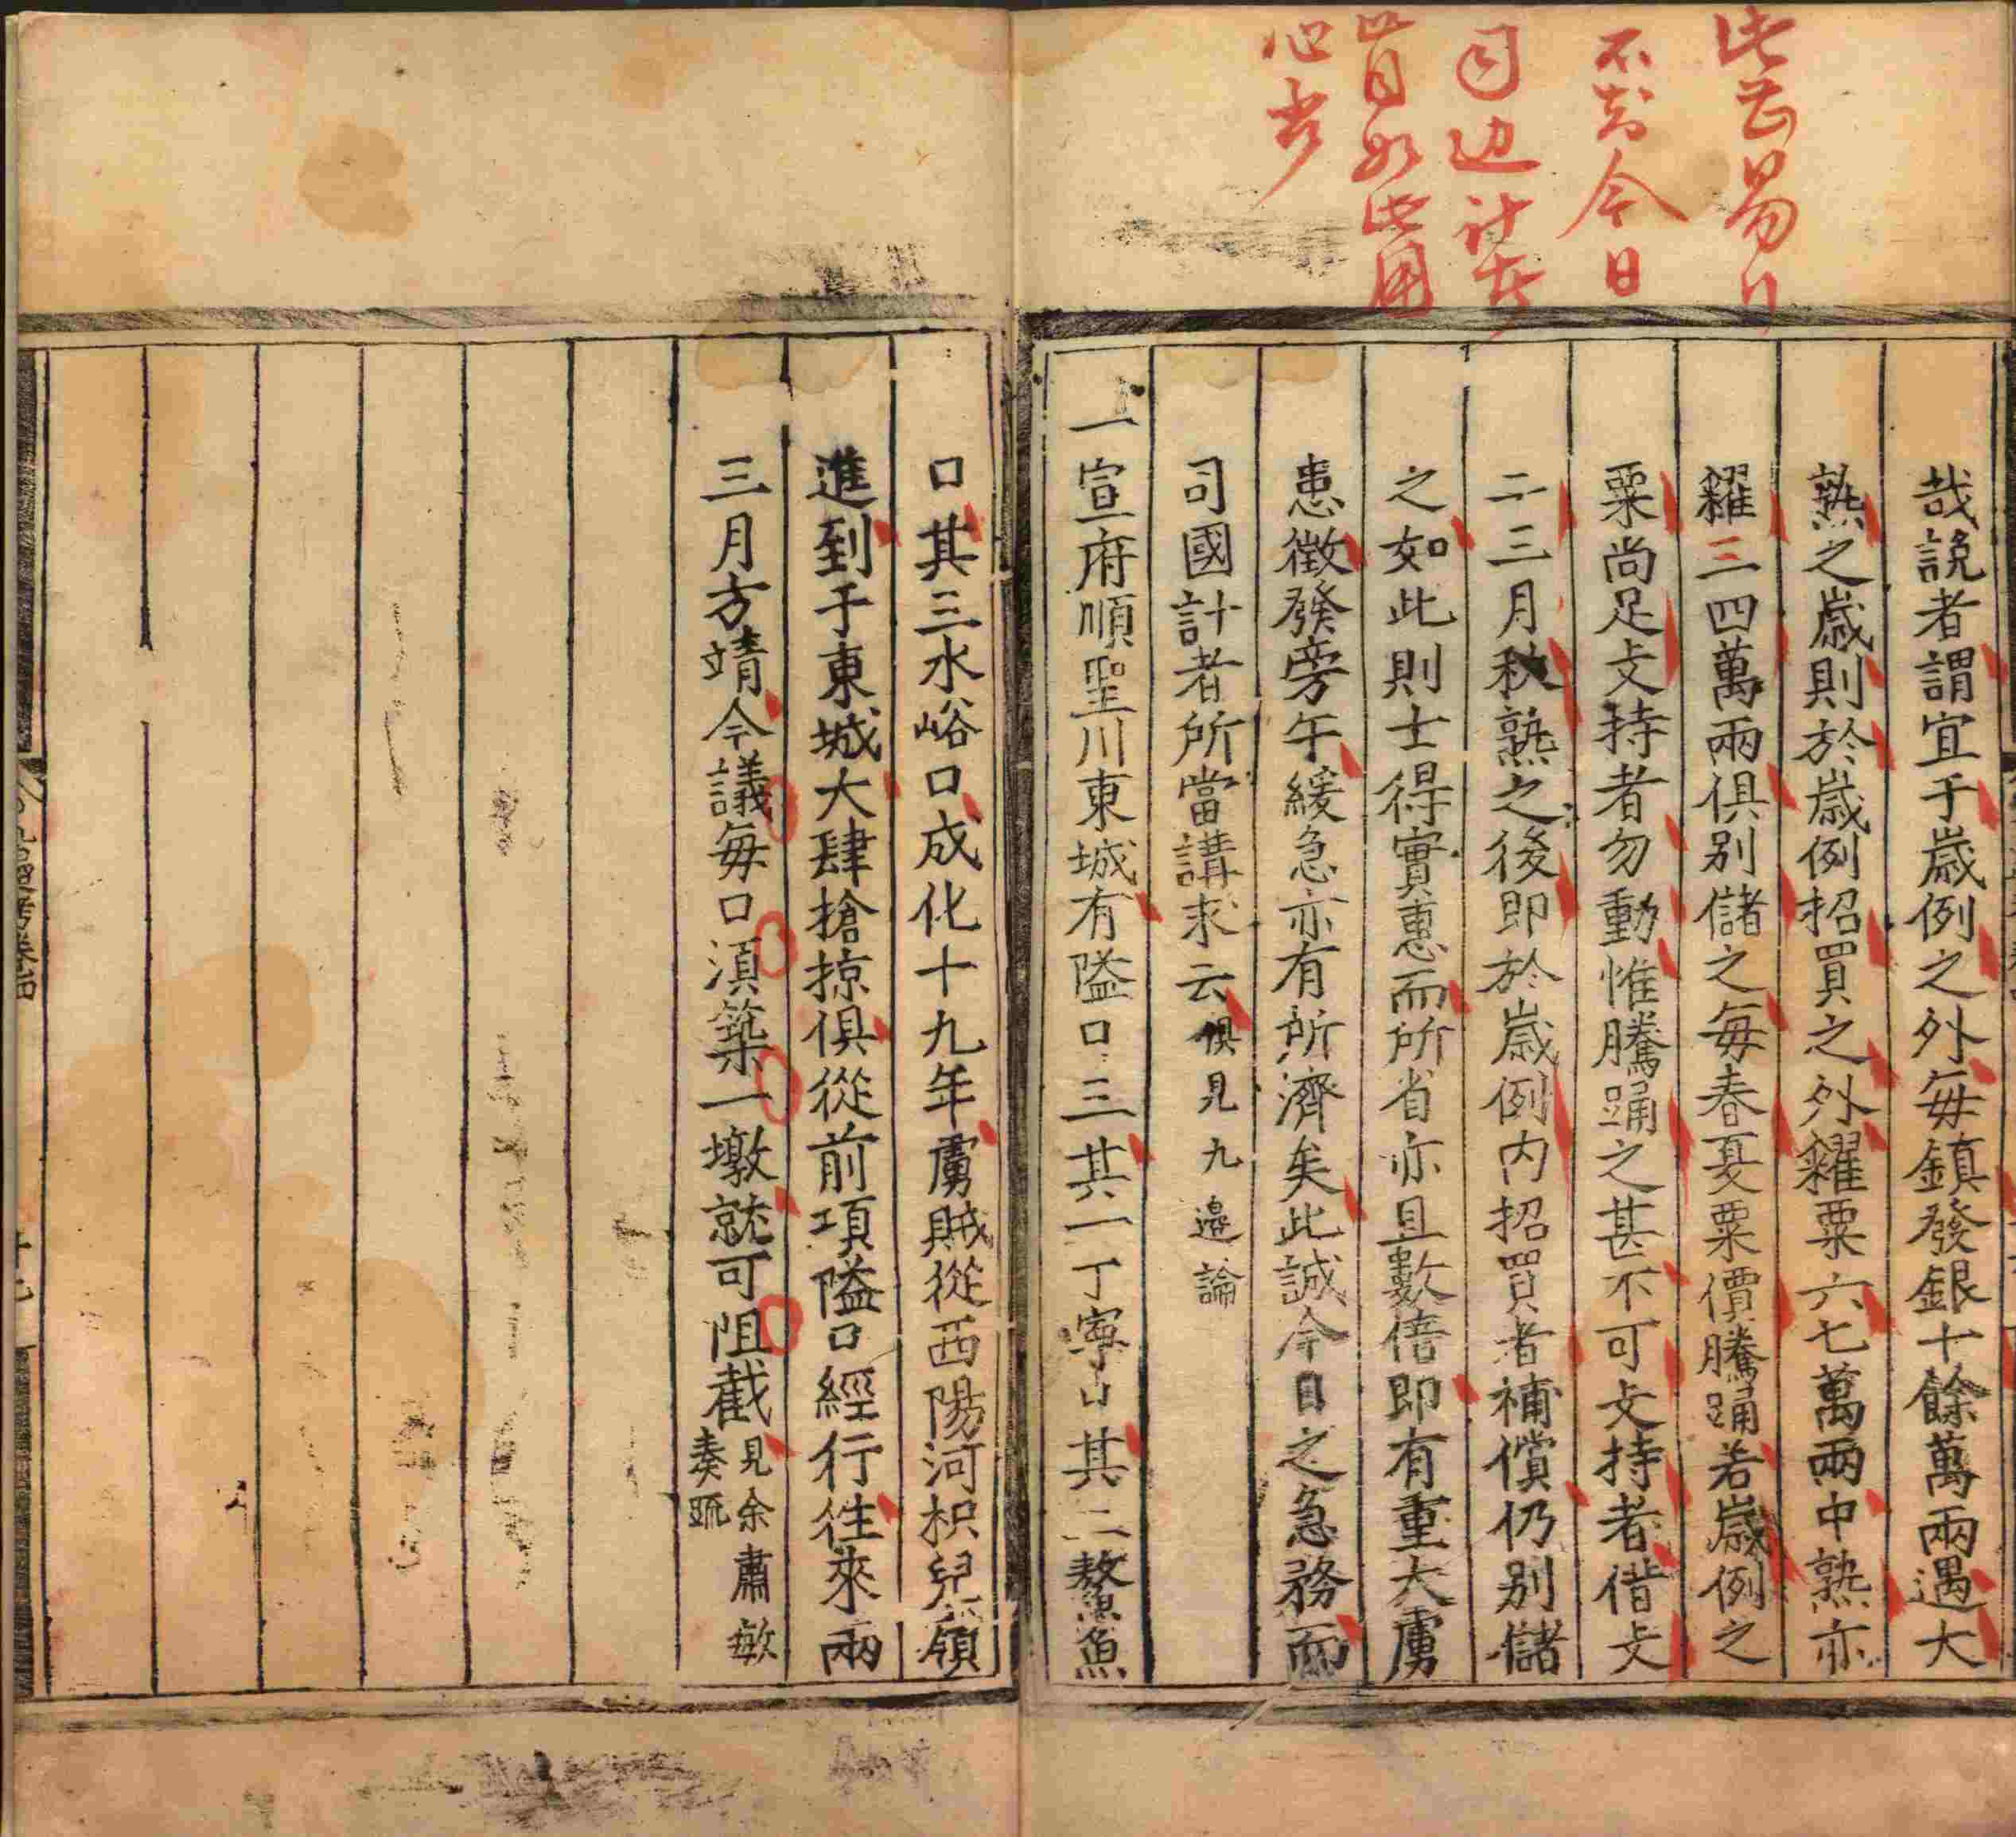 此甚易行
不知今日
司边計者
皆日如此用
心否
哉說者謂宜于歲例之外每鎮發銀十餘萬兩遇大
熟之歲則於歲例招買之外糴粟六七萬兩中熟亦
糴三四萬兩俱別儲之每春夏粟價騰踊若歲例之
粟尚足支持者勿動惟騰踊之甚不可支持者借支
二三月秋熟之後即於歲例内招買者補償仍别儲
之如此則士得實惠而所省亦且數倍即有重大虜
患徵發旁午緩急亦有所濟矣此誠今日之急務而
司國計者所當講求云俱見九邊論
一宣府順聖川東城有隘口三其一丁寧口其二鰲魚
口其三水峪口成化十九年虜賊從西陽河枳兒嶺
進到于東城大肆搶掠俱從前項隘口經行徃來兩
三月方靖今議每口湏築一墩就可阻截見余肅敏
奏疏